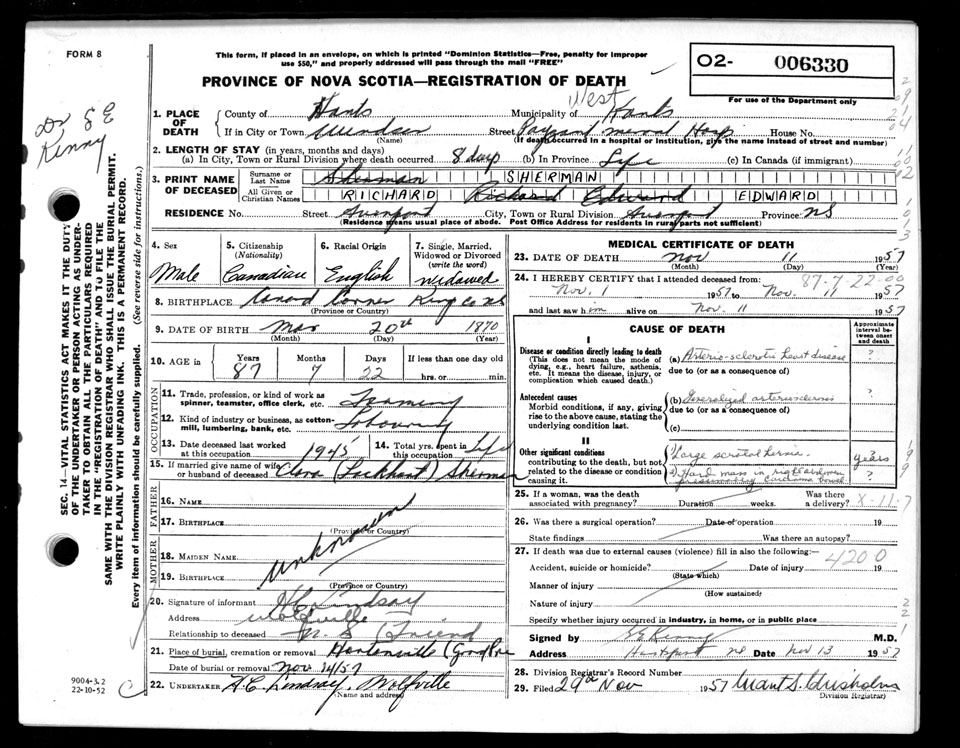 FORM 8
This form, if placed in an envelope, on which is printed "Dominion Statistics—Free, penalty for improper
use $50," and properly addressed will pass through the mail "FREE"
O2- 006330
For use of the Department only
PROVINCE OF NOVA SCOTIA—REGISTRATION OF DEATH
Dr S E
Kenny
SEC. 14—VITAL STATISTICS ACT MAKES IT THE DUTY
OF THE UNDERTAKER OR PERSON ACTING AS UNDER-
TAKER "TO OBTAIN ALL THE PARTICULARS REQUIRED
IN THE "REGISTRATION OF DEATH" AND TO FILE THE
SAME WITH THE DIVISION REGISTRAR WHO SHALL ISSUE THE BURIAL PERMIT.
WRITE PLAINLY WITH UNFADING INK. THIS IS A PERMANENT RECORD.
Every item of information should be carefully supplied. (See reverse side for instructions.)
1. PLACE OF DEATH
County of Hants Municipality of West Hants
If in City or Town Windsor Street Payzant Memorial Hosp House No.
(Name) (If death occurred in a hospital or institution, give the name instead of street and number)
2. LENGTH OF STAY (in years, months and days)
(a) In City, Town or Rural Division where death occurred 8 days (b) In Province Life (c) In Canada (if immigrant)
3. PRINT NAME OF DECEASED
Surname or Last Name Sherman SHERMAN
All Given or Christian Names RICHARD Richard Edward EDWARD
RESIDENCE No. Street Avonport City, Town or Rural Division Avonport Province NS
(Residence means usual place of abode. Post Office Address for residents in rural parts not sufficient)
4. Sex
Male
5. Citizenship (Nationality)
Canadian
6. Racial Origin
English
7. Single, Married, Widowed or Divorced (write the word)
Widowed
8. BIRTHPLACE Canard Corner Kings Co NS
(Province or Country)
9. DATE OF BIRTH Mar 20th 1870
(Month) (Day) (Year)
10. AGE in Years Months Days If less than one day old
87 7 22 hrs. or min.
OCCUPATION
11. Trade, profession, or kind of work as spinner, teamster, office clerk, etc. Farming
12. Kind of industry or business, as cotton-mill, lumbering, bank, etc.
13. Date deceased last worked at this occupation 1945 14. Total yrs. spent in this occupation Life
15. If married give name of wife or husband of deceased Clara (Lockhart) Sherman
FATHER
16. NAME
17. BIRTHPLACE
(Province or Country)
MOTHER
18. MAIDEN NAME
19. BIRTHPLACE
(Province or Country)
unknown
20. Signature of informant H C Lindsay
Address Wolfville
Relationship to deceased N. S (Friend
21. Place of burial, cremation or removal Hortonville (Grand Pre
Date of burial or removal Nov 14/57
22. UNDERTAKER H.C. Lindsay, Wolfville
(Name and address)
9004-3.2
22-10-52
MEDICAL CERTIFICATE OF DEATH
23. DATE OF DEATH Nov 11 1957
(Month) (Day) (Year)
87-7-22-00
24. I HEREBY CERTIFY that I attended deceased from:
Nov. 1 1957 to Nov. 11 1957
and last saw him alive on Nov. 11 1957
CAUSE OF DEATH
Approximate interval between onset and death
I
Disease or condition directly leading to death
(This does not mean the mode of dying, e.g., heart failure, asthenia, etc. It means the disease, injury, or complication which caused death.)
(a) Arterio-sclerotic heart disease ?
due to (or as a consequence of)
Antecedent causes
Morbid conditions, if any, giving rise to the above cause, stating the underlying condition last.
(b) Generalized arteriosclerosis ?
due to (or as a consequence of)
(c)
II
Other significant conditions
contributing to the death, but not related to the disease or condition causing it.
Large scrotal hernia. years
2) Hard mass in right abdomen ?
presumably carcinoma bowel
25. If a woman, was the death associated with pregnancy? Duration weeks. Was there a delivery? X-11-7
26. Was there a surgical operation? Date of operation 19
State findings Was there an autopsy?
27. If death was due to external causes (violence) fill in also the following:
4200
Accident, suicide or homicide? Date of injury 19
(State which)
Manner of injury
(How sustained)
Nature of injury
Specify whether injury occurred in industry, in home, or in public place
Signed by S E Kenny M.D.
Address Hantsport NS Date Nov 13 1957
28. Division Registrar's Record Number
29. Filed 29th Nov 1957 Grant S. Chisholm
(Division Registrar)